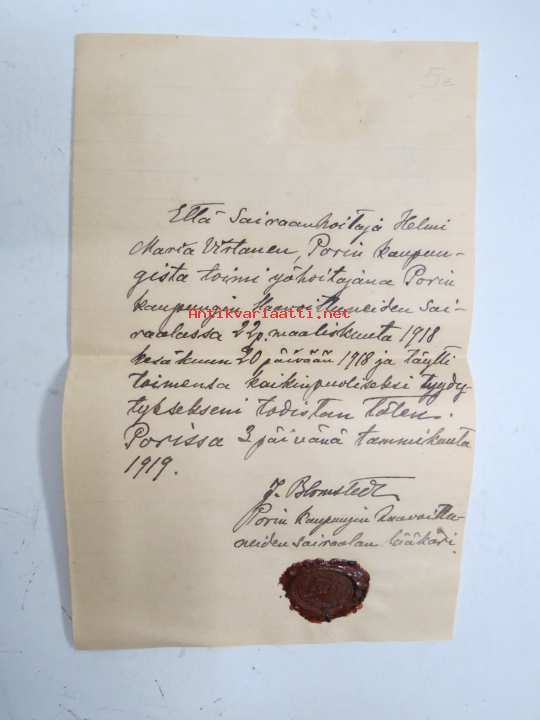 5e
Että Sairaanhoitaja Helmi
Maria Virtanen, Porin kaupun-
gista toimi yöhoitajana Porin
kaupungin Haavoittuneiden Sai-
Antikvariaatti.net
raalassa 22 p. maaliskuuta 1918
kesäkuun 20 päivään 1918 ja täytti
toimensa kaikinpuoliseksi tyydy-
tyksekseni todistan täten.
Porissa 3 päivänä tammikuuta
1919.
J. Blomstedt
Porin kaupungin haavoittu-
neiden sairaalan lääkäri.